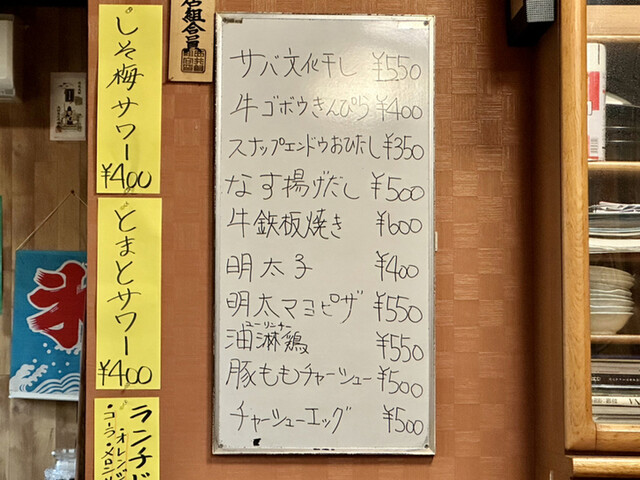 しそ梅サワー
¥400
とまとサワー
¥400
ランチド
・オレンジ
・コーラ・メロン
組合員
サバ文化干し ¥550
牛ゴボウきんぴら ¥400
スナップエンドウおひたし ¥350
なす揚げだし ¥500
牛鉄板焼き ¥600
明太子 ¥400
明太マヨピザ ¥550
ユーリンチー
油淋鶏 ¥550
豚ももチャーシュー ¥500
チャーシューエッグ ¥500
氷